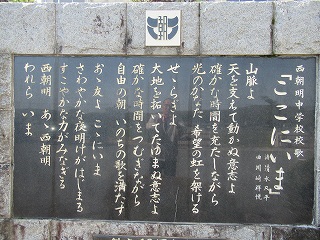 朝明
西朝明中学校校歌
「ここにいま」
山脈よ
天を支えて動かぬ意志よ
確かな時間を充たしながら
光のかなた 希望の虹を架ける
せせらぎよ
大地を拓いてたゆまぬ意志よ
確かな時間をつむぎながら
自由の朝 いのちの歌を満たす
おゝ友よ こゝにいま
さわやかな夜明けがはじまる
すこやかな力がみなぎる
西朝明 あゝ西朝明
われら いま